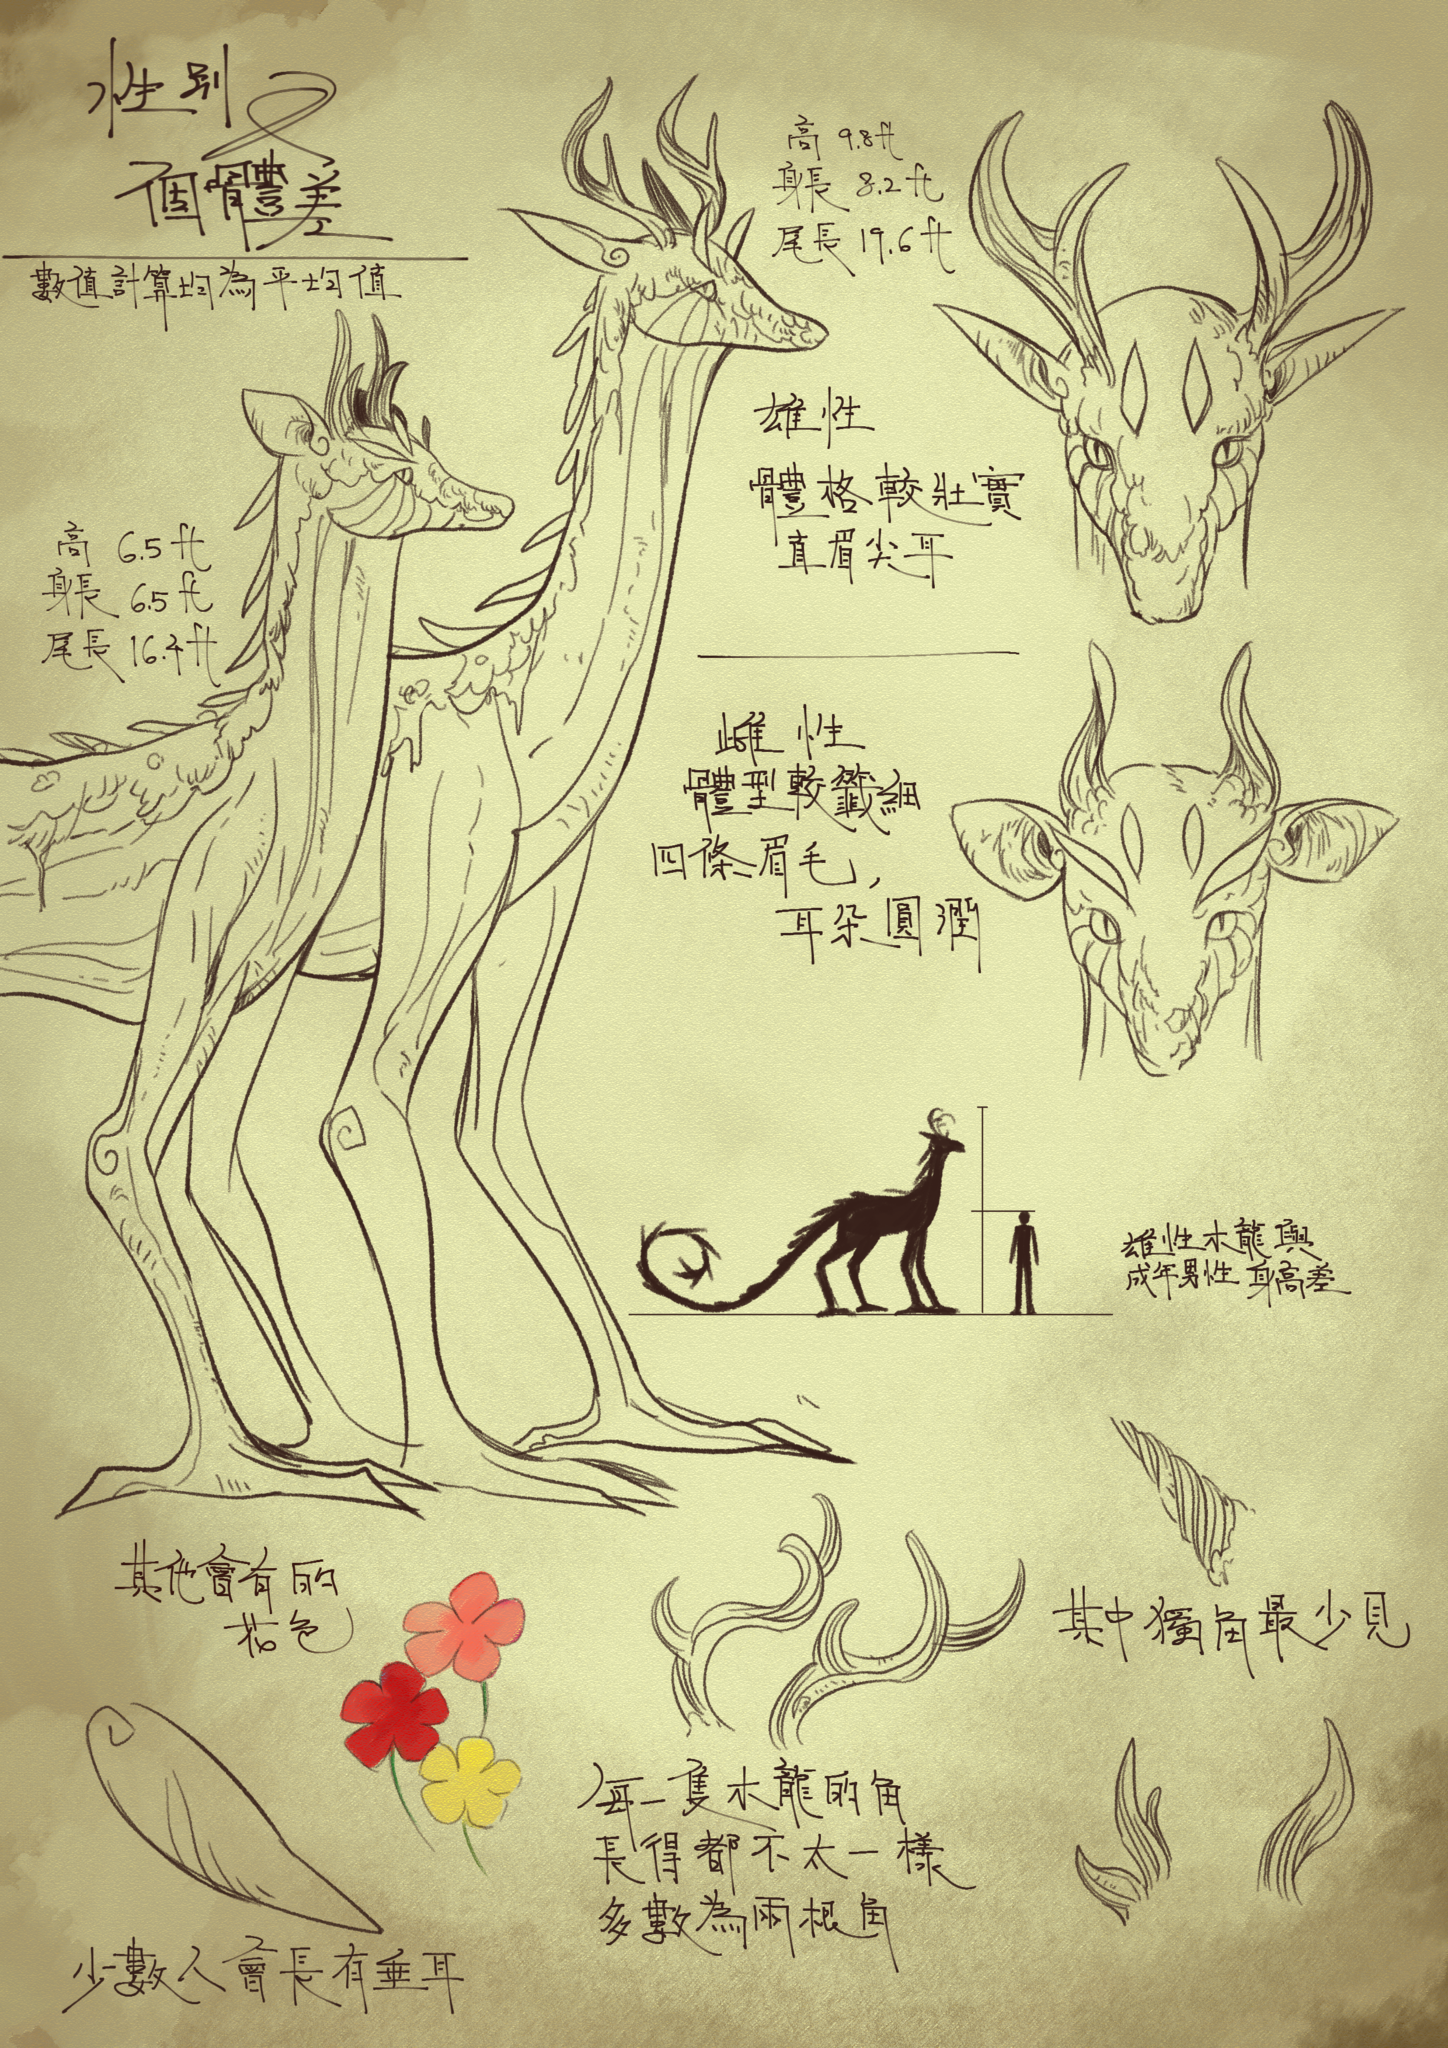 性別
及
個體差
數值計算均為平均值
高 9.8ft
身長 8.2ft
尾長 19.6ft
雄性
體格較壯實
直眉尖耳
高 6.5ft
身長 6.5ft
尾長 16.4ft
雌性
體型較纖細
四條眉毛,
耳朵圓潤
雄性木龍與
成年男性身高差
其他會有的
花色
其中獨角最少見
每一隻木龍的角
長得都不太一樣
多數為兩根角
少數人會長有垂耳